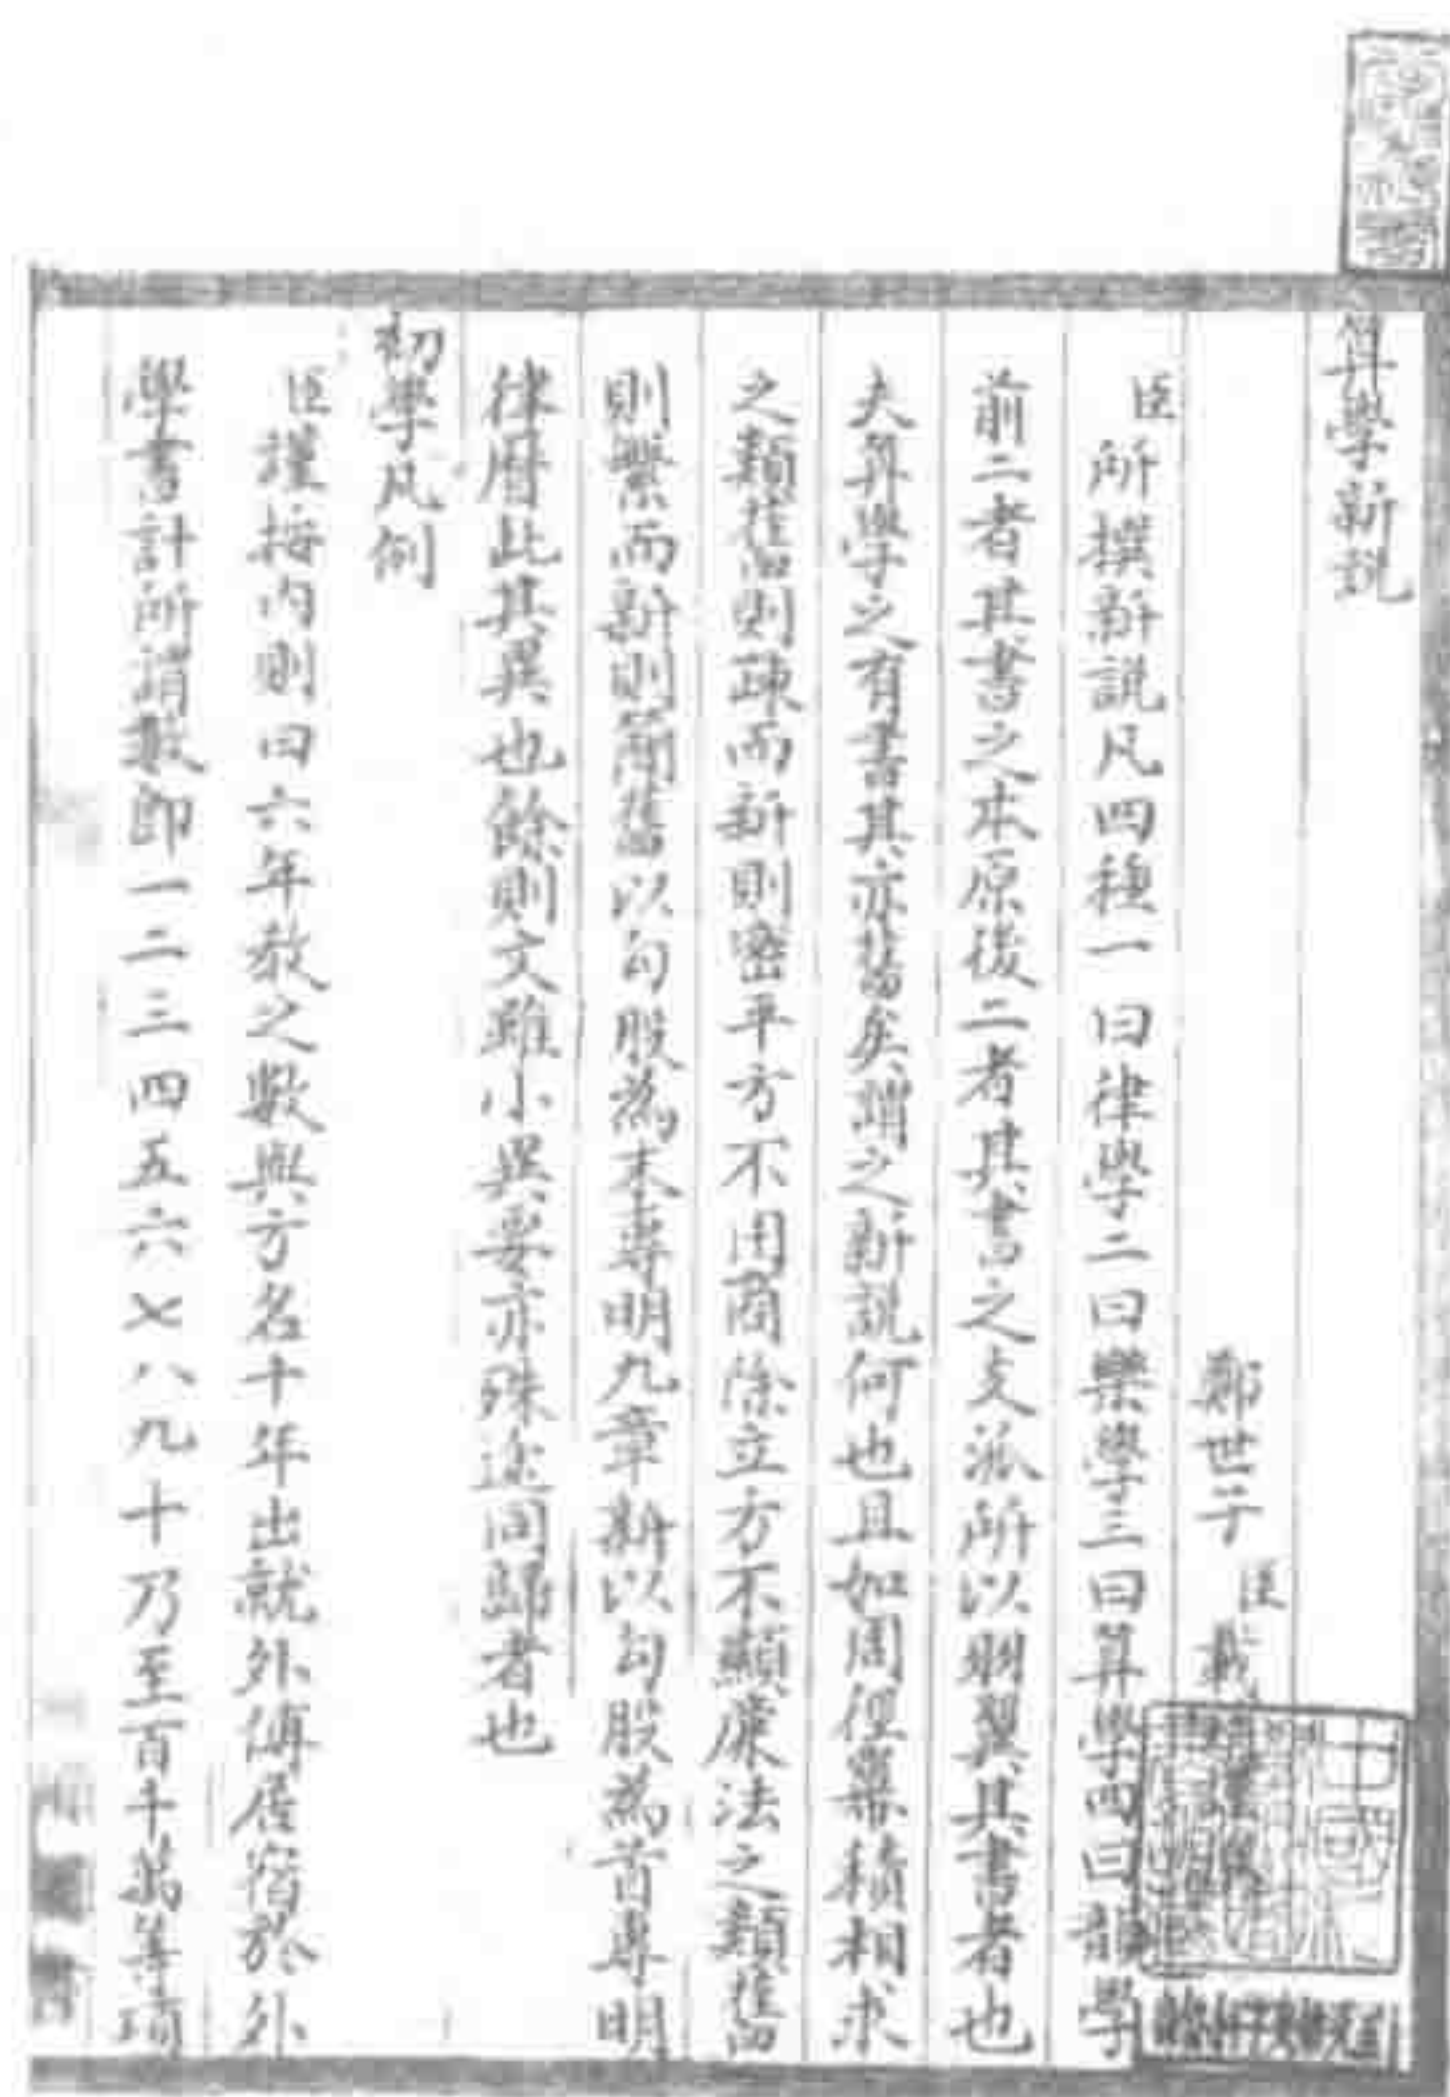 算學新説
鄭世子臣載堉謹撰
臣所撰新説凡四種一曰律學二曰樂學三曰算學四曰韻學
前二者其書之本原後二者其書之支派所以羽翼其書者也
夫算學之有書其亦舊矣謂之新説何也且如周徑冪積相求
之類舊則疎而新則密平方不用商除立方不顯廉法之類舊
則繁而新則簡舊以勾股為末專明九章新以勾股為首專明
律曆此其異也餘則文雖小異要亦殊途同歸者也
初學凡例
臣謹按内則曰六年教之數與方名十年出就外傅居宿於外
學書計所謂數即一二三四五六七八九十乃至百千萬等項